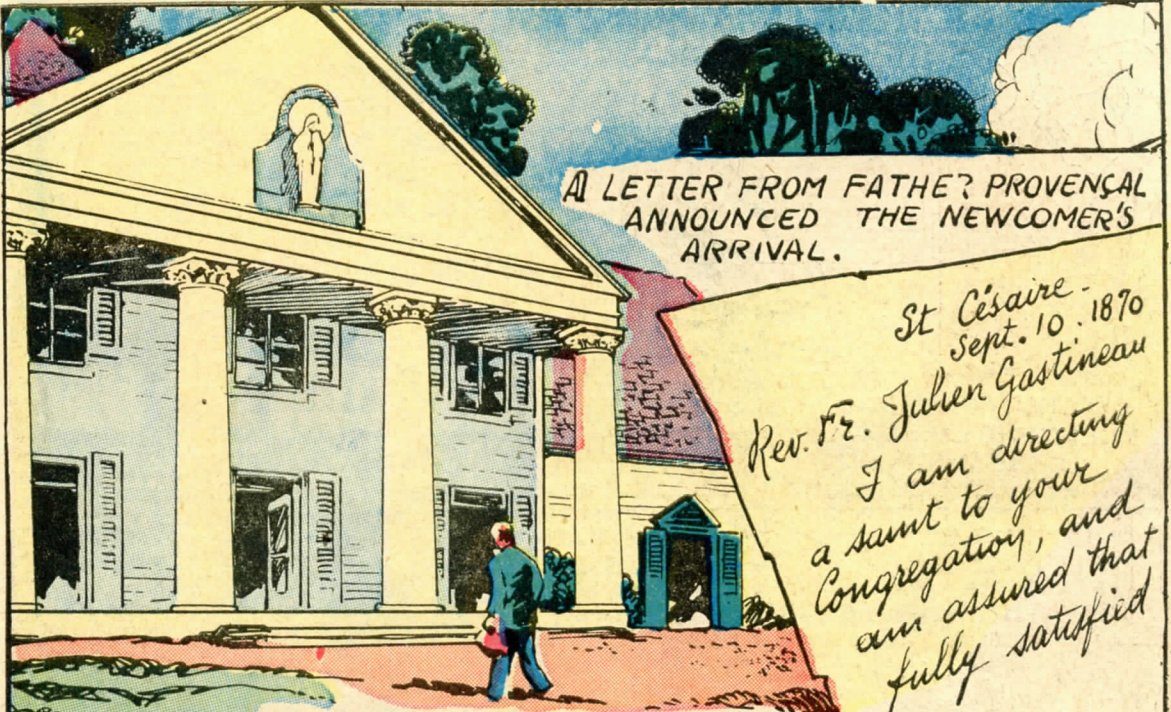 A LETTER FROM FATHER PROVENÇAL
ANNOUNCED THE NEWCOMER'S
ARRIVAL.
St Césaire.
Sept. 10. 1870
Rev. Fr. Julien Gastineau
I am directing
a saint to your
Congregation, and
am assured that
fully satisfied